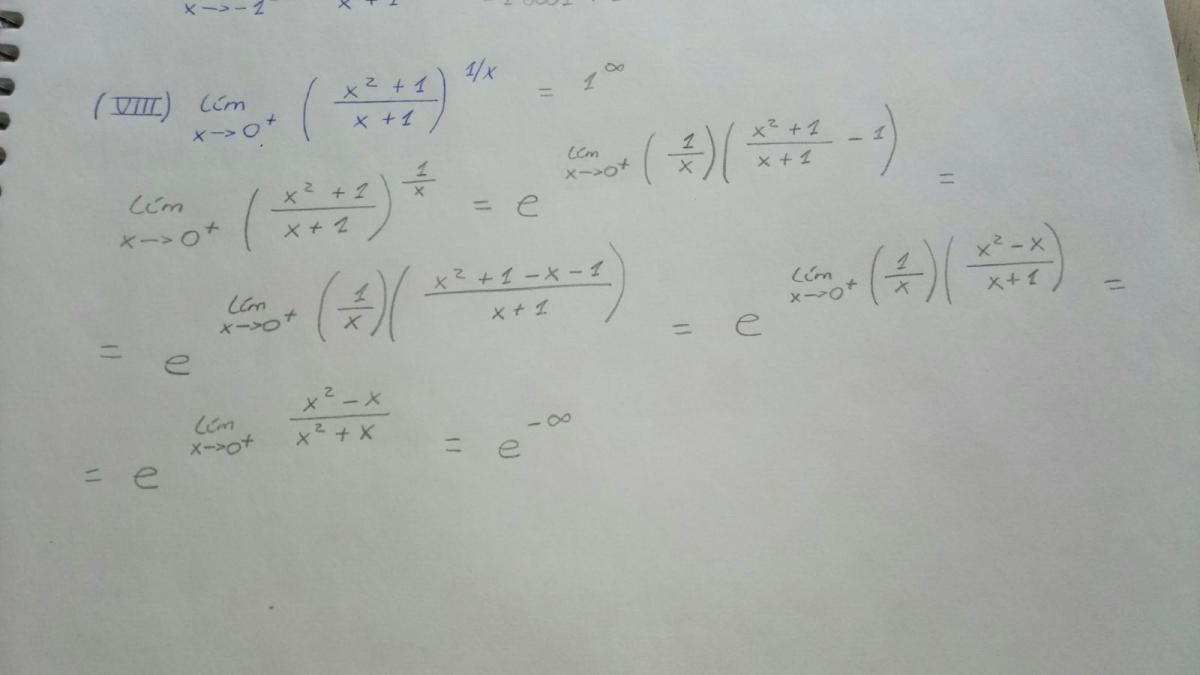 x→-1
(VIII) lím x→0⁺ ( (x² + 1)/(x + 1) )^(1/x) = 1^∞
lím x→0⁺ ( (x² + 1)/(x + 1) )^(1/x) = e^( lím x→0⁺ (1/x)( (x² + 1)/(x + 1) - 1 ) ) =
= e^( lím x→0⁺ (1/x)( (x² + 1 - x - 1)/(x + 1) ) ) = e^( lím x→0⁺ (1/x)( (x² - x)/(x + 1) ) ) =
= e^( lím x→0⁺ (x² - x)/(x² + x) ) = e^(-∞)